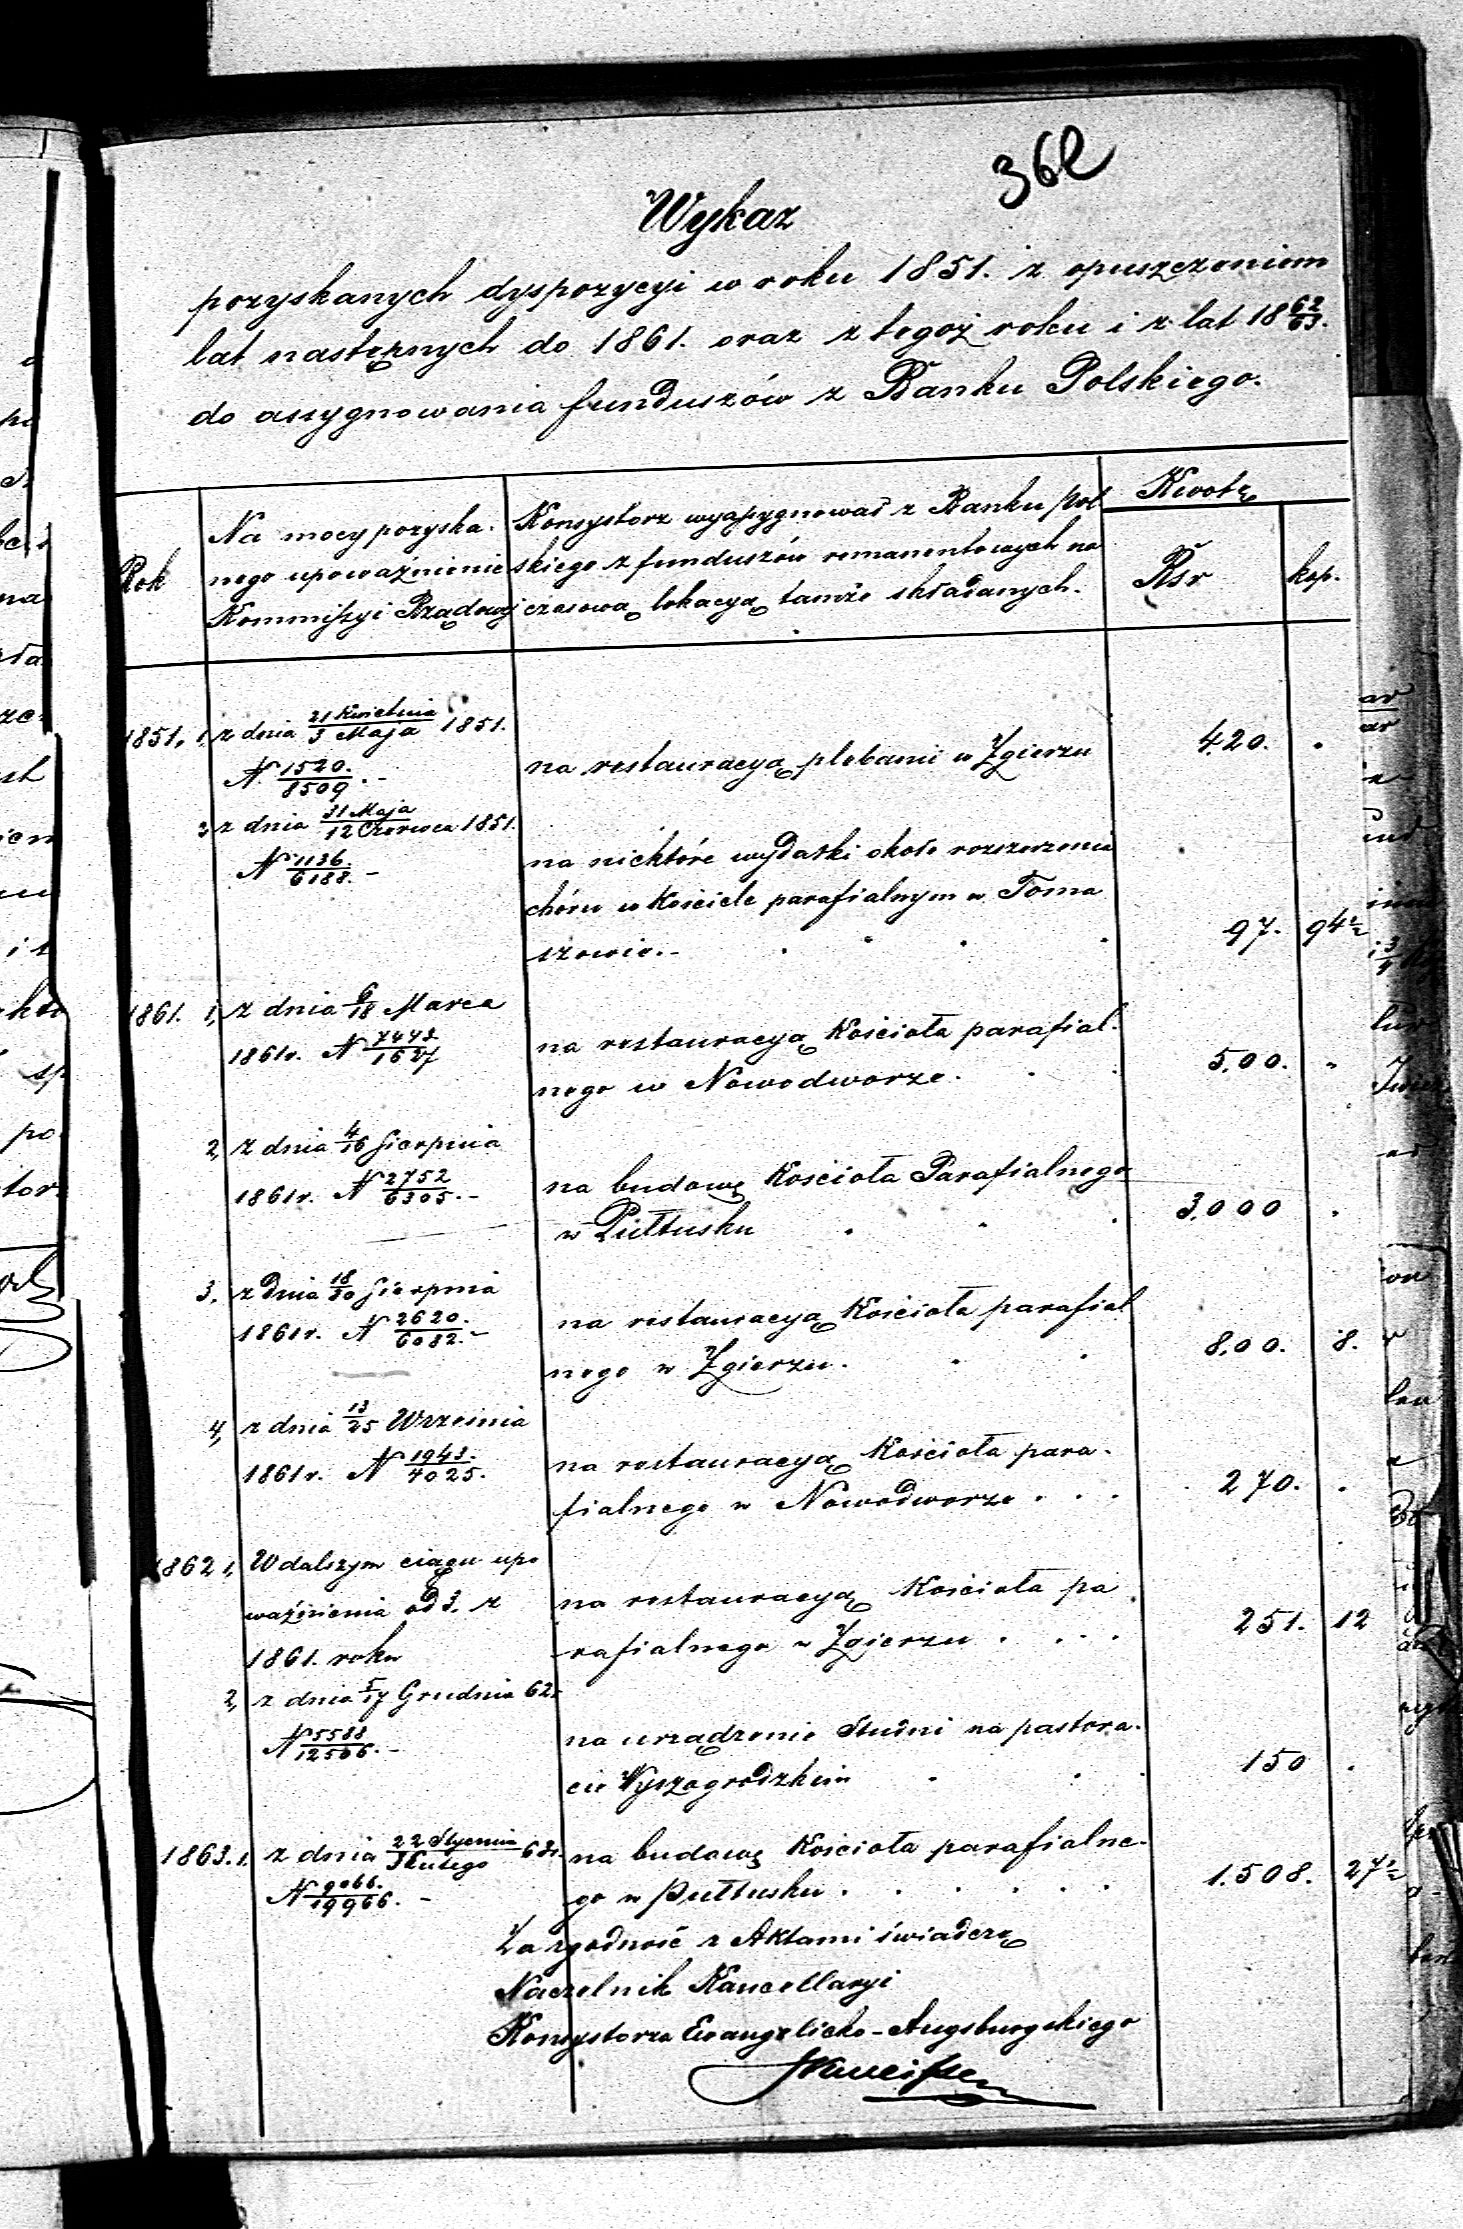 362
Wykaz
pozyskanych dyspozycyi w roku 1851. z opuszczeniem
lat następnych do 1861. oraz z tegoż roku i z lat 18 62/63.
do assygnowania funduszów z Banku Polskiego.
Rok
Na mocy pozyska-
nego upoważnienia
Kommissyi Rządowej
Konsystorz wyassygnował z Banku Pol
skiego z funduszów remanentowych na
czasową lokacyą tamże składanych.
Kwotę
Rsr
kop.
1851. 1, z dnia 21 Kwietnia/3 Maja 1851.
N 1520./8509. -
na restauracyą plebanii w Zgierzu 420. "
2 z dnia 31 Maja/12 Czerwca 1851.
N 1136./6188. -
na niektóre wydatki około rozszerzenia
chóru w Kościele parafialnym w Toma
szowie. - 97. 94½
1861. 1, z dnia 6/18 Marca
1861 r. N 7473/1627
na restauracyą Kościoła parafial-
nego w Nowodworze. 500. "
2, z dnia 4/16 Sierpnia
1861 r. N 2752/6305. -
na budowę Kościoła Parafialnego
w Pułtusku 3,000 .
3, z dnia 18/30 Sierpnia
1861 r. N 2620./6082. -
na restauracyą Kościoła parafial
nego w Zgierzu. 800. 8.
4, z dnia 13/25 Września
1861 r. N 1943./4025.
na restauracyą Kościoła para-
fialnego w Nowodworze . . . 270. .
1862 1, W dalszym ciągu upo
ważnienia ad 3. z
1861. roku
na restauracyą Kościoła pa
rafialnego w Zgierzu . . . . 251. 12
2, z dnia 5/17 Grudnia 62 r.
N 5588/12506. -
na urządzenie Studni na pastora-
cie Wyszogrodzkim 150 .
1863. 1. z dnia 22 Stycznia/3 Lutego 63 r.
N 9066./19966. -
na budowę Kościoła parafialne-
go w Pułtusku . . . . . . 1.508. 27½
Za zgodność z Aktami świadczę
Naczelnik Kancellaryi
Konsystorza Ewangelicko-Augsburgskiego